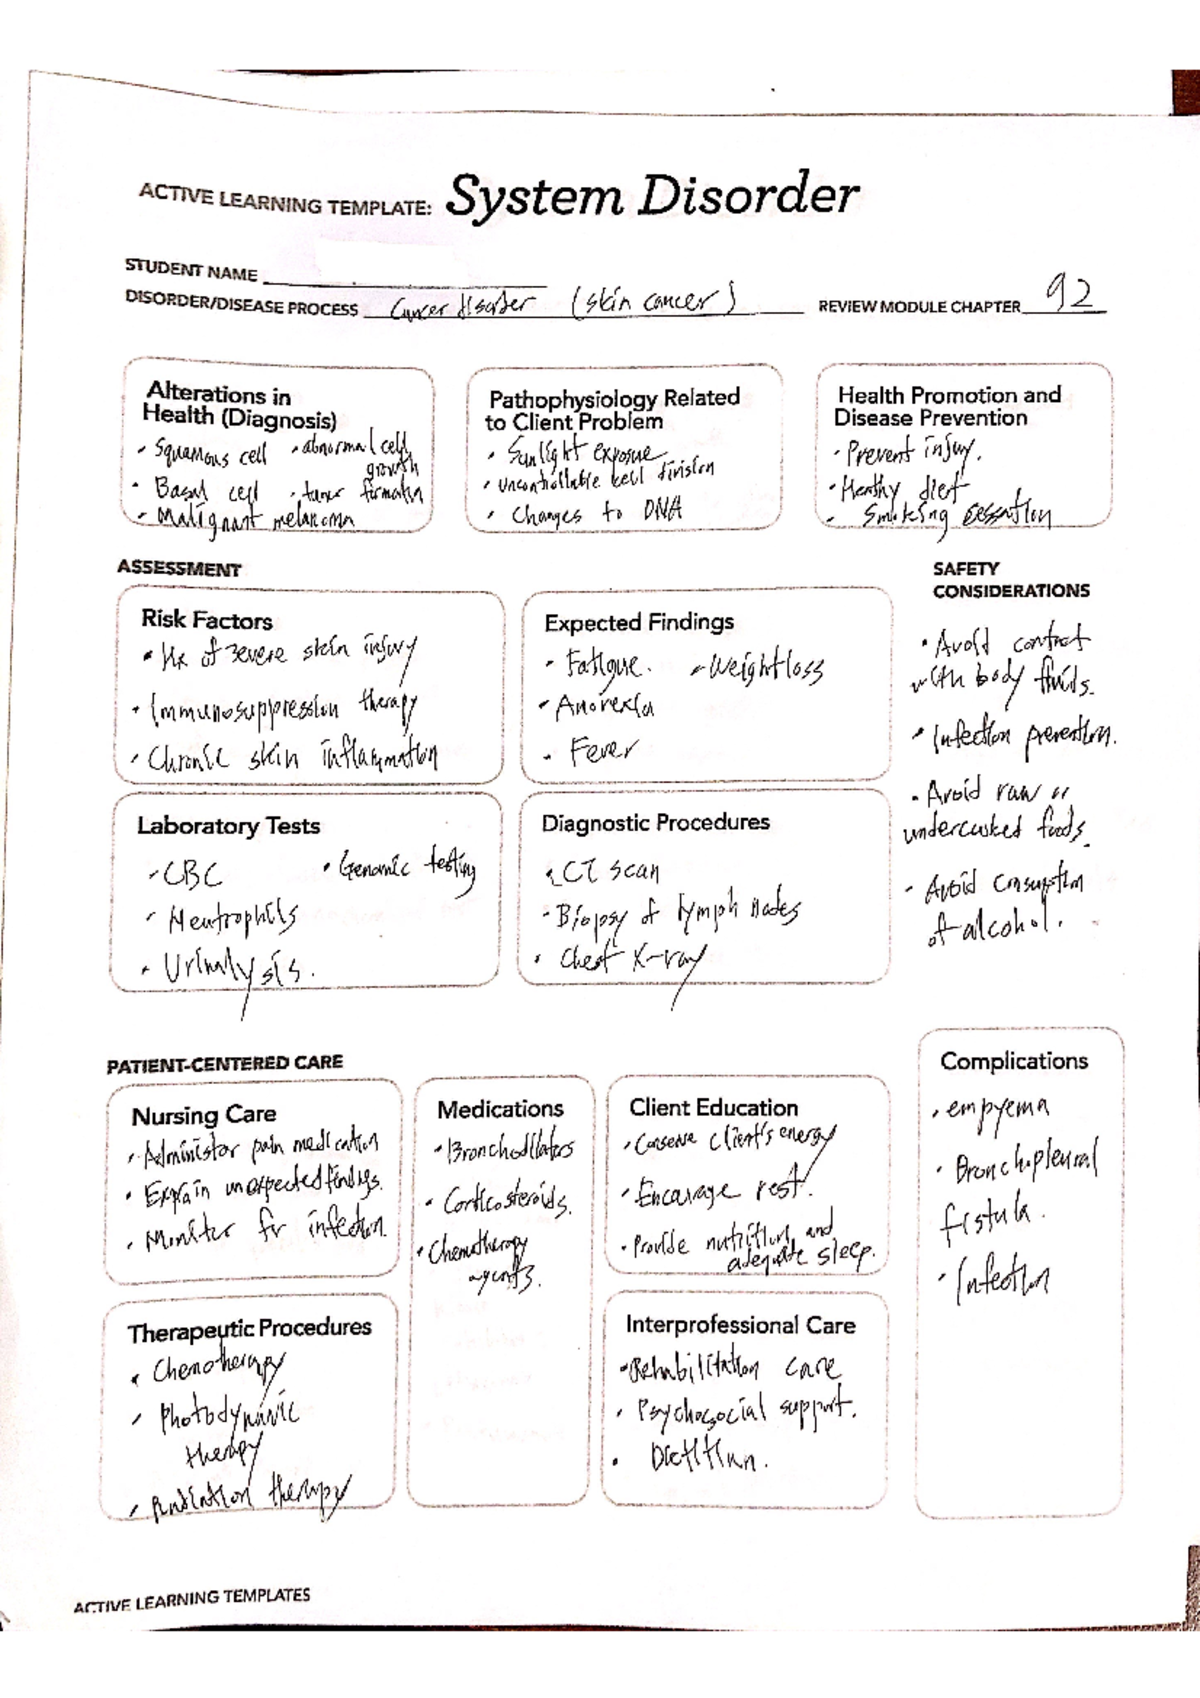 ACTIVE LEARNING TEMPLATE: System Disorder
STUDENT NAME
DISORDER/DISEASE PROCESS Cancer disorder (skin cancer) REVIEW MODULE CHAPTER 92
Alterations in
Health (Diagnosis)
• Squamous cell • abnormal cell
growth
• Basal cell • tumor formation
• Malignant melanoma
Pathophysiology Related
to Client Problem
• Sunlight exposue
• uncontrollable cell division
• Changes to DNA
Health Promotion and
Disease Prevention
• Prevent injury.
• Healthy diet
• Smoking cessation
ASSESSMENT
Risk Factors
• Hx of severe skin injury
• Immunosuppression therapy
• Chronic skin inflammation
Expected Findings
• Fatigue. • Weight loss
• Anorexia
• Fever
SAFETY
CONSIDERATIONS
• Avoid contact
with body fluids.
• Infection prevention.
• Avoid raw or
undercooked foods.
• Avoid consumption
of alcohol.
Laboratory Tests
• CBC • Genomic testing
• Neutrophils
• Urinalysis.
Diagnostic Procedures
• CT scan
• Biopsy of lymph nodes
• Chest X-ray
PATIENT-CENTERED CARE
Nursing Care
• Administer pain medication
• Explain unexpected findings.
• Monitor for infection.
Medications
• Bronchodilators
• Corticosteroids.
• Chemotherapy
agents.
Client Education
• Conserve client's energy
• Encourage rest.
• Provide nutrition and
adequate sleep.
Complications
• empyema
• Bronchopleural
fistula.
• Infection
Therapeutic Procedures
• Chemotherapy
• Photodynamic
therapy
• Radiation therapy
Interprofessional Care
• Rehabilitation care
• Psychosocial support.
• Dietitian.
ACTIVE LEARNING TEMPLATES